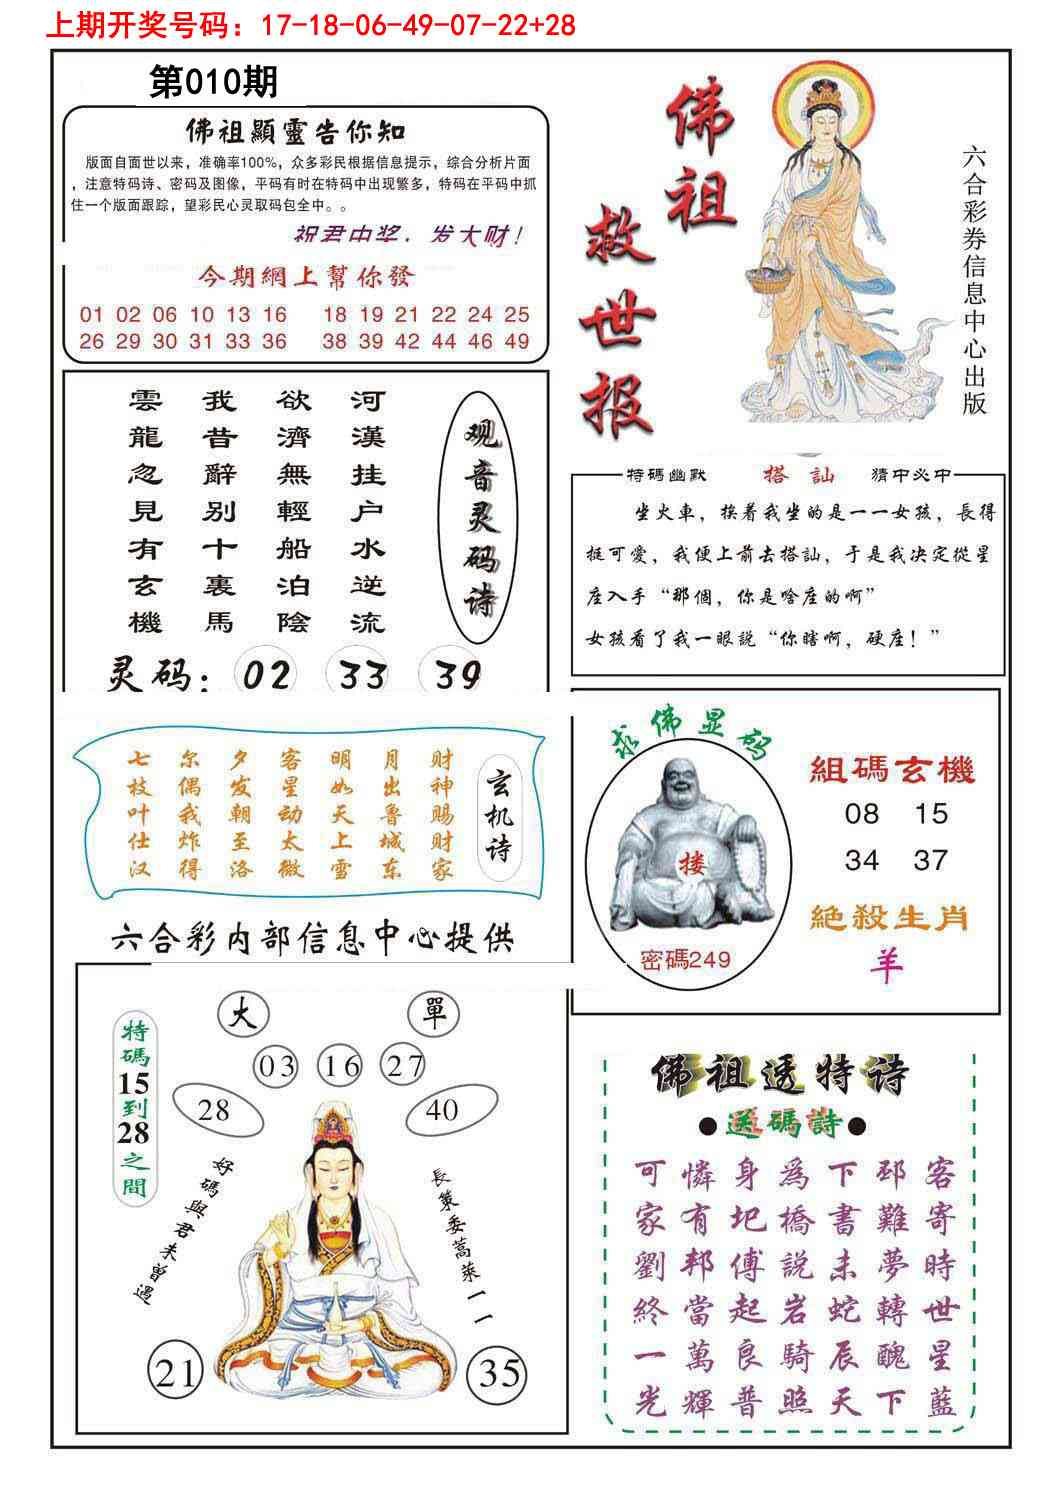 上期开奖号码：17-18-06-49-07-22+28
第010期
佛祖顯靈告你知
版面自面世以来，准确率100%，众多彩民根据信息提示，综合分析片面
，注意特码诗、密码及图像，平码有时在特码中出现繁多，特码在平码中抓
住一个版面跟踪，望彩民心灵取码包全中。。
祝君中奖，发大财！
今期網上幫你發
01 02 06 10 13 16 18 19 21 22 24 25
26 29 30 31 33 36 38 39 42 44 46 49
佛祖
救世报
六合彩券信息中心出版
观音灵码诗
河漢挂户水逆流
欲濟無輕船泊陰
我昔辭别十裏馬
雲龍忽見有玄機
灵码：02 33 39
特碼幽默 搭訕 猜中必中
坐火車，挨着我坐的是一一女孩，長得
挺可愛，我便上前去搭訕，于是我决定從星
座入手“那個，你是啥座的啊”
女孩看了我一眼説“你瞎啊，硬座！”
玄机诗
七尔夕客明月财
枝偶发星如出神
叶我朝动天鲁赐
仕炸至太上城财
汉得洛微雪东家
六合彩内部信息中心提供
求佛显码
搂
密碼249
組碼玄機
08 15
34 37
絶殺生肖
羊
特碼15到28之間
大 單
03 16 27
28 40
好碼與君未曾遇
長策委蒿萊一一
21 35
佛祖透特诗
●送碼詩●
可憐身爲下邳客
家有圯橋書難寄
劉邦傅説未夢時
終當起岩蛇轉世
一萬良騎辰醜星
光輝普照天下藍